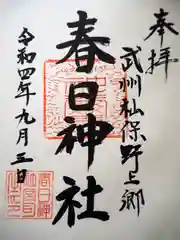 奉拝
武州私保野上郷
春日神社
令和四年九月三日